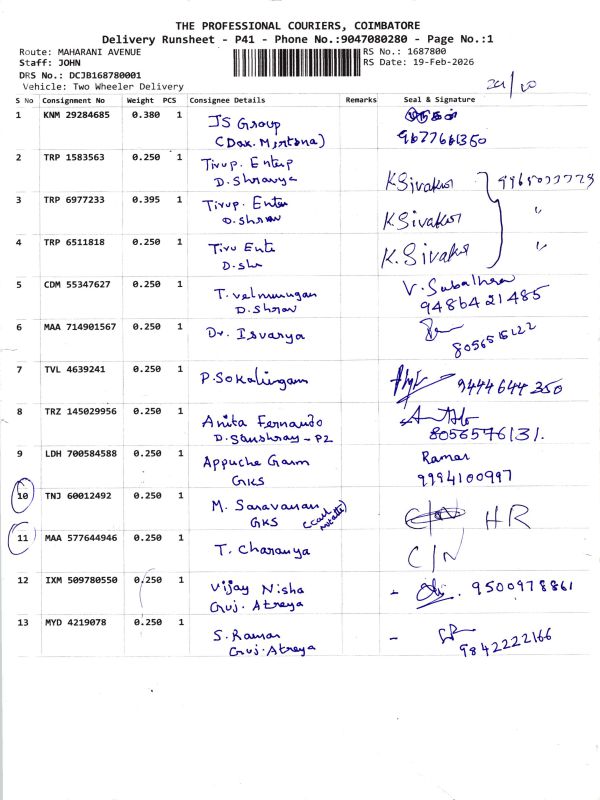 THE PROFESSIONAL COURIERS, COIMBATORE
Delivery Runsheet - P41 - Phone No.:9047080280 - Page No.:1
Route: MAHARANI AVENUE
RS No.: 1687800
Staff: JOHN
RS Date: 19-Feb-2026
DRS No.: DCJB168780001
Vehicle: Two Wheeler Delivery
S No Consignment No Weight PCS Consignee Details Remarks Seal & Signature
1 KNM 29284685 0.380 1 JS Group
9677661350
2 TRP 1583563 0.250 1 Tirup. Enterp
D. Shranya K Sivakur
3 TRP 6977233 0.395 1 Tirup. Enter
D. Shran K Sivakur "
4 TRP 6511818 0.250 1 Tiru Ente
D. shr K. Sivakur "
5 CDM 55347627 0.250 1 T. velmurugan V. Subalhra
D. Shran 9486421485
6 MAA 714901567 0.250 1 Dr. Isvarya
8056515122
7 TVL 4639241 0.250 1 P. Sokalingam 9444644350
8 TRZ 145029956 0.250 1 Anita Fernando
D. Sanshray - P2 8056576131.
9 LDH 700584588 0.250 1 Appuche Garm Ramar
GKS 9994100997
10 TNJ 60012492 0.250 1 M. Saravanan
GKS HR
11 MAA 577644946 0.250 1 T. Charanya C/N
12 IXM 509780550 0.250 1 Vijay Nisha - 9500978861
Guj. Atreya
13 MYD 4219078 0.250 1 S. Raman -
Guj. Atreya 9842222166